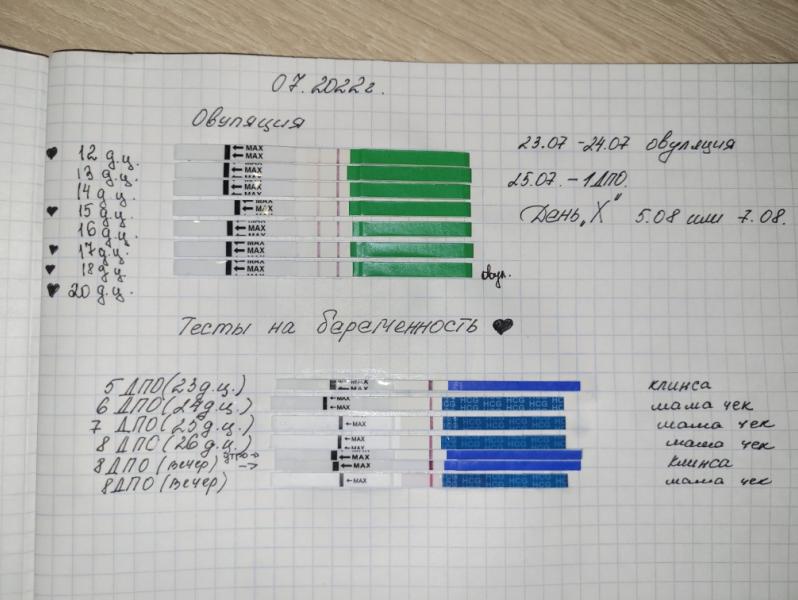 07.2022г.
Овуляция
12 д.ц. MAX
13 д.ц. MAX
14 д.ц. MAX
15 д.ц. MAX
16 д.ц. MAX
17 д.ц. MAX
18 д.ц. MAX овул.
20 д.ц.
23.07-24.07 овуляция
25.07.-1ДПО.
День "Х" 5.08 или 7.08.
Тесты на беременность
5 ДПО (23 д.ц.) MAX клинса
6 ДПО (24 д.ц.) MAX HCG HCG HCG HCG мама чек
7 ДПО (25 д.ц.) MAX HCG HCG HCG мама чек
8 ДПО (26 д.ц.) MAX HCG HCG HCG мама чек
утро MAX
8 ДПО (вечер) MAX клинса
8 ДПО (вечер) MAX HCG HCG HCG мама чек